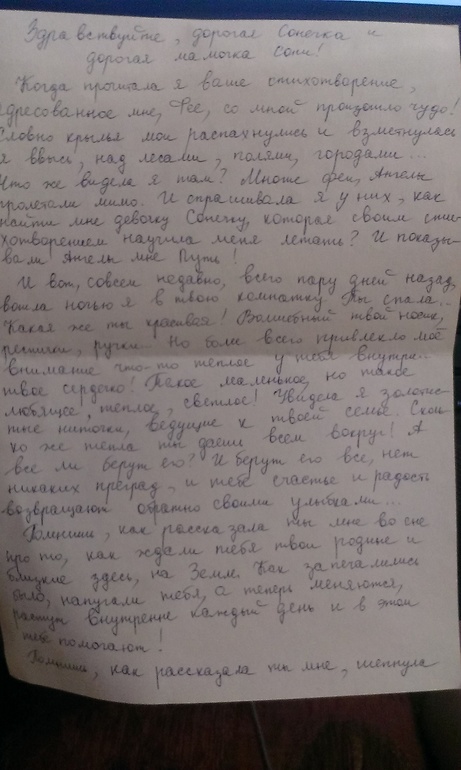 Здравствуйте, дорогая Сонечка и
дорогая мамочка Сони!
Когда прочитала я ваше стихотворение,
адресованное мне, Фее, со мной произошло чудо!
Словно крылья мои распахнулись и взметнулась
я ввысь, над лесами, полями, городами...
Что же видела я там? Многие феи, Ангелы
пролетали мимо. И спрашивала я у них, как
найти мне девочку Сонечку, которая своим сти-
хотворением научила меня летать? И показы-
вали Ангелы мне Путь!
И вот, совсем недавно, всего пару дней назад,
вошла ночью я в твою комнатку. Ты спала...
Какая же ты красивая! Волшебный твой носик,
реснички, ручки... Но более всего привлекло моё
внимание что-то теплое у тебя внутри...
твое сердечко! Такое маленькое, но такое
любящее, теплое, светлое! Увидела я золотис-
тые ниточки, ведущие к твоей семье. Сколь-
ко же тепла ты даешь всем вокруг! А
все ли берут его? И берут его все, нет
никаких преград, и тебе счастье и радость
возвращают обратно своими улыбками...
Помнишь, как рассказала ты мне во сне
про то, как ждали тебя твои родные и
близкие здесь, на Земле. Как запечалились
было, напугали тебя, а теперь меняются,
растут внутренне каждый день и в этом
тебе помогают!
Помнишь, как рассказала ты мне, шепнула